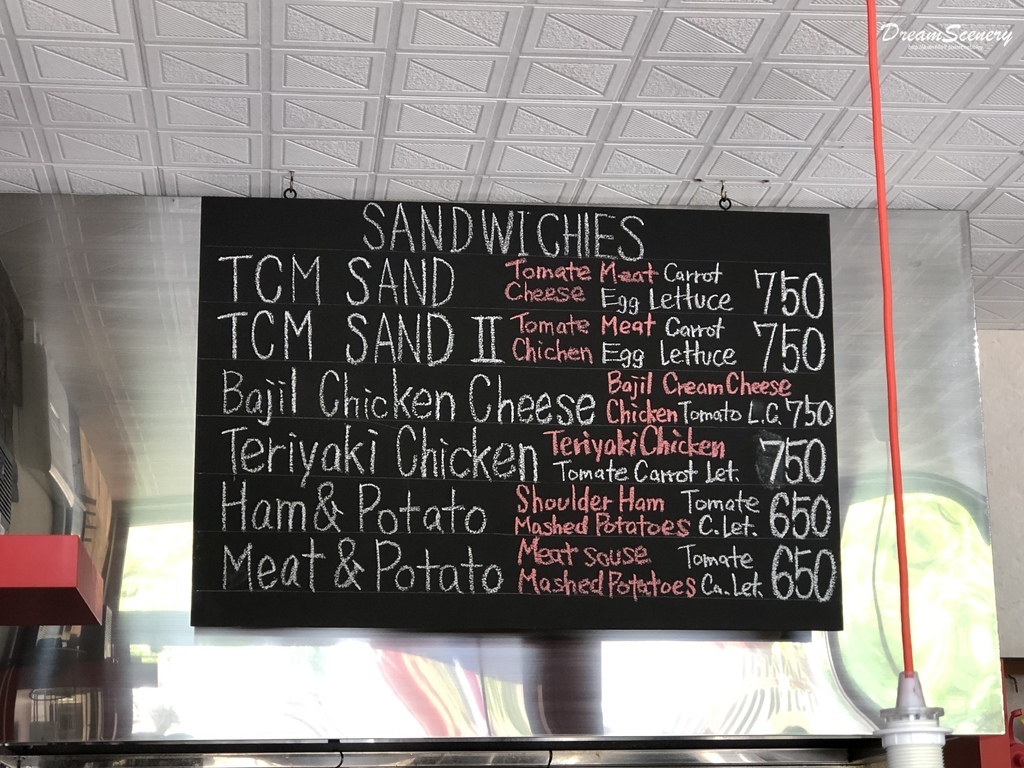 DreamScenery
SANDWICHIES
TCM SAND Tomate Meat Carrot 750
Cheese Egg Lettuce
TCM SAND II Tomate Meat Carrot 750
Chichen Egg Lettuce
Bajil Chicken Cheese Bajil Cream Cheese
Chicken Tomato L.C. 750
Teriyaki Chicken Teriyaki Chicken 750
Tomate Carrot Let.
Ham & Potato Shoulder Ham Tomate 650
Mashed Potatoes C. Let.
Meat & Potato Meat souse Tomate 650
Mashed Potatoes Ca. Let.